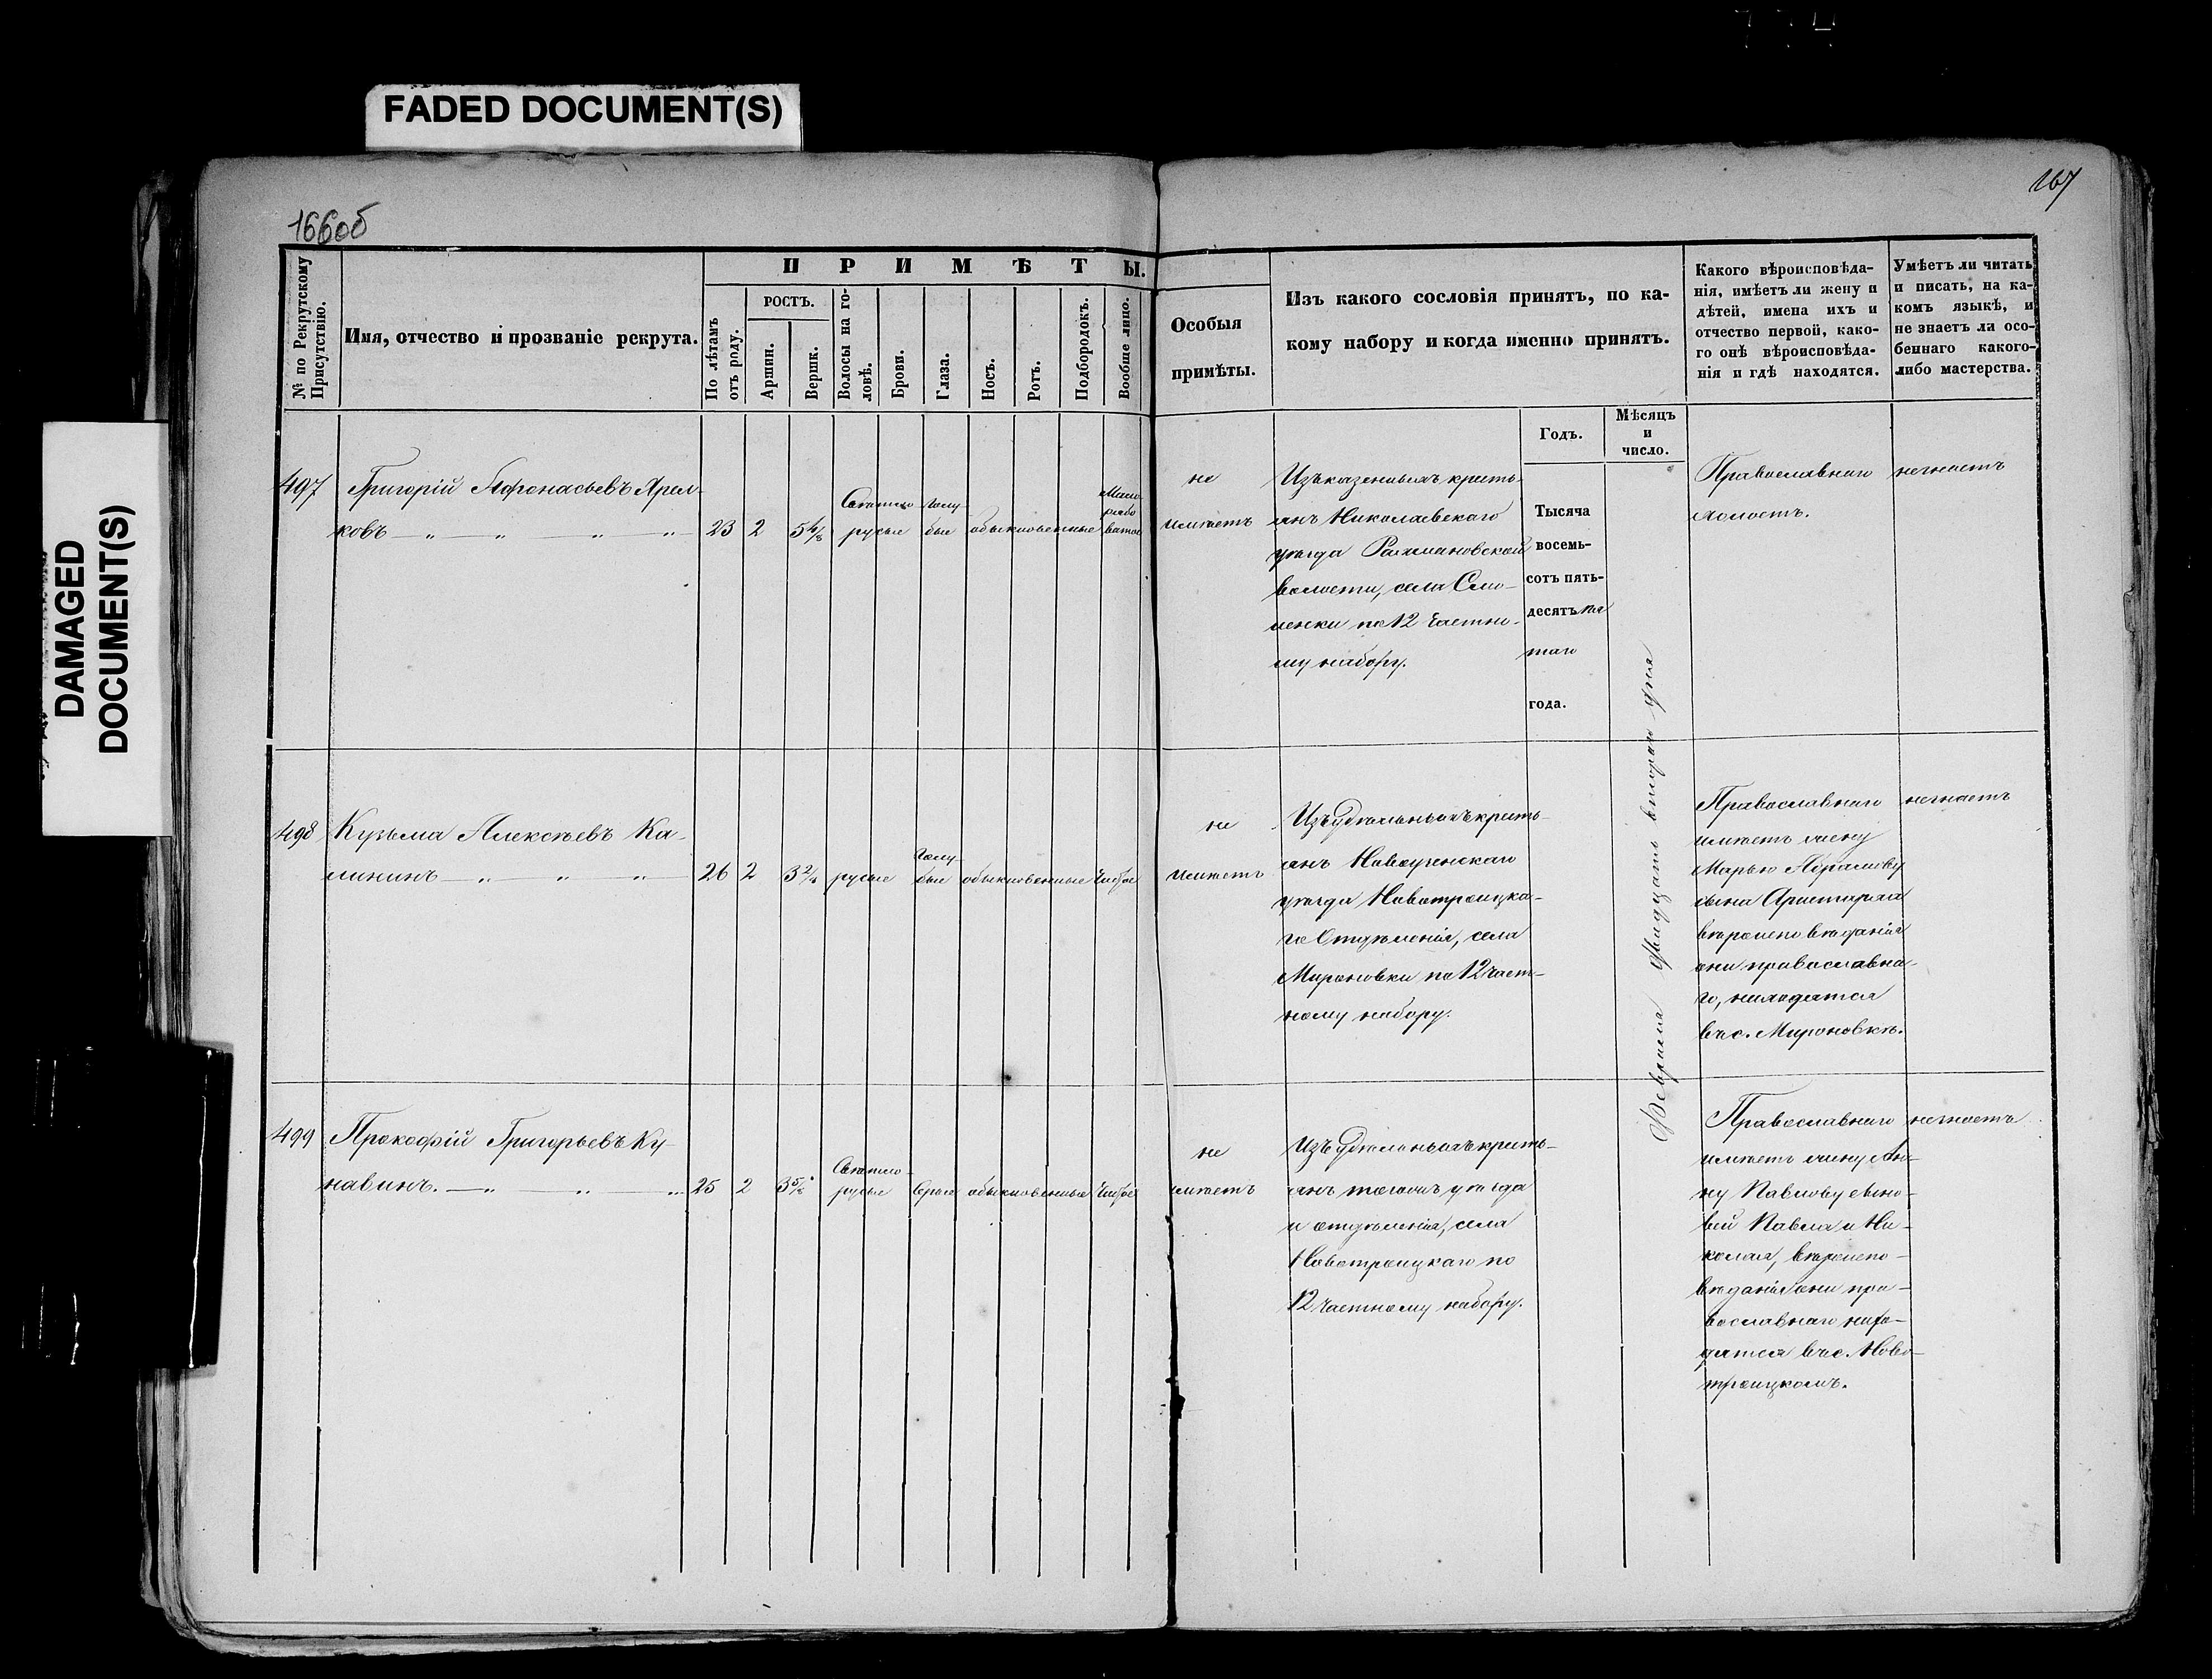 FADED DOCUMENT(S)
DAMAGED
DOCUMENT(S)
166об
167
№ по Рекрутскому
Присутствію.
Имя, отчество и прозваніе рекрута.
ПРИМѢТЫ.
По лѣтамъ
отъ роду.
РОСТЪ.
Аршин.
Вершк.
Волосы на го-
ловѣ.
Брови.
Глаза.
Носъ.
Ротъ.
Подбородокъ.
Вообще лицо.
Особыя
примѣты.
Изъ какого сословія принятъ, по ка-
кому набору и когда именно принятъ.
Годъ.
Мѣсяцъ
и
число.
Какого вѣроисповѣда-
нія, имѣетъ ли жену и
дѣтей, имена ихъ и
отчество первой, како-
го онѣ вѣроисповѣда-
нія и гдѣ находятся.
Умѣетъ ли читать
и писать, на ка-
комъ языкѣ, и
не знаетъ ли осо-
беннаго какого-
либо мастерства.
497
Григорій Афонасьевъ Ярел-
ковъ — „ — „ „ „
23
2
5 4/8
Свѣтло-
русые
Голу-
бые
обыкновенные
Мало
рябо
ватое
не
имѣетъ
Изъ казенныхъ кресть-
янъ Николаевскаго
уѣзда Рахмановской
волости, села Сло-
менки по 12 частно-
му набору.
Тысяча
восемь-
сотъ пять-
десятъ пя
таго
года.
Февраля двадцать втораго дня
Православнаго
холостъ.
незнаетъ
498
Кузьма Алексѣевъ Ка-
лининъ — „ „ „
26
2
3 2/8
русые
Голу-
бые
обыкновенные
Чистое
не
имѣетъ
Изъ удѣльныхъ кресть-
янъ Новоузенскаго
уѣзда Новотроицка-
го Отдѣленія, села
Мироновки по 12 част-
ному набору.
Православнаго
имѣетъ жену
Марью Абрамову
сына Аристарха
вѣроисповѣданія
они православна-
го, находятся
въ с. Мироновкѣ.
незнаетъ
499
Прокофій Григорьевъ Ку-
навинъ. — „ „ „
25
2
3 5/8
Свѣтло-
русые
Сѣрые
обыкновенные
Чистое
не
имѣетъ
Изъ удѣльныхъ кресть-
янъ тогожъ уѣзда
и отдѣленія, села
Новотроицкаго по
12 частному набору.
Православнаго
имѣетъ жену Ан-
ну Павлову сыно-
вей Павла и Ни-
колая, вѣроиспо-
вѣданія они пра-
вославнаго нахо-
дятся въ с. Ново-
троицкомъ.
незнаетъ